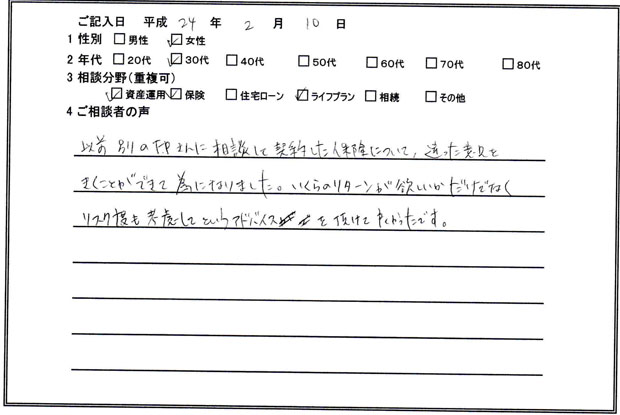 ご記入日 平成 24 年 2 月 10 日
1 性別 □男性 ☑女性
2 年代 □20代 ☑30代 □40代 □50代 □60代 □70代 □80代
3 相談分野(重複可)
☑資産運用 ☑保険 □住宅ローン ☑ライフプラン □相続 □その他
4 ご相談者の声
以前 別のFPさんに相談して契約した保険について、違った意見を
きくことができて為になりました。いくらのリターンが欲しいかだけでなく
リスク度も考慮してというアドバイスを頂けてよかったです。